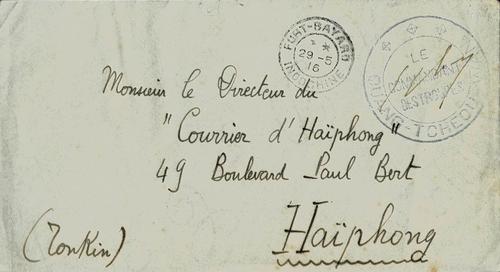 FORT-BAYARD
29-5
16
INDOCHINE
LE
COMMANDANT
DES TROUPES
QUANG-TCHEOU
Monsieur le Directeur du
"Courrier d'Haïphong"
49 Boulevard Paul Bert
(Tonkin)
Haïphong